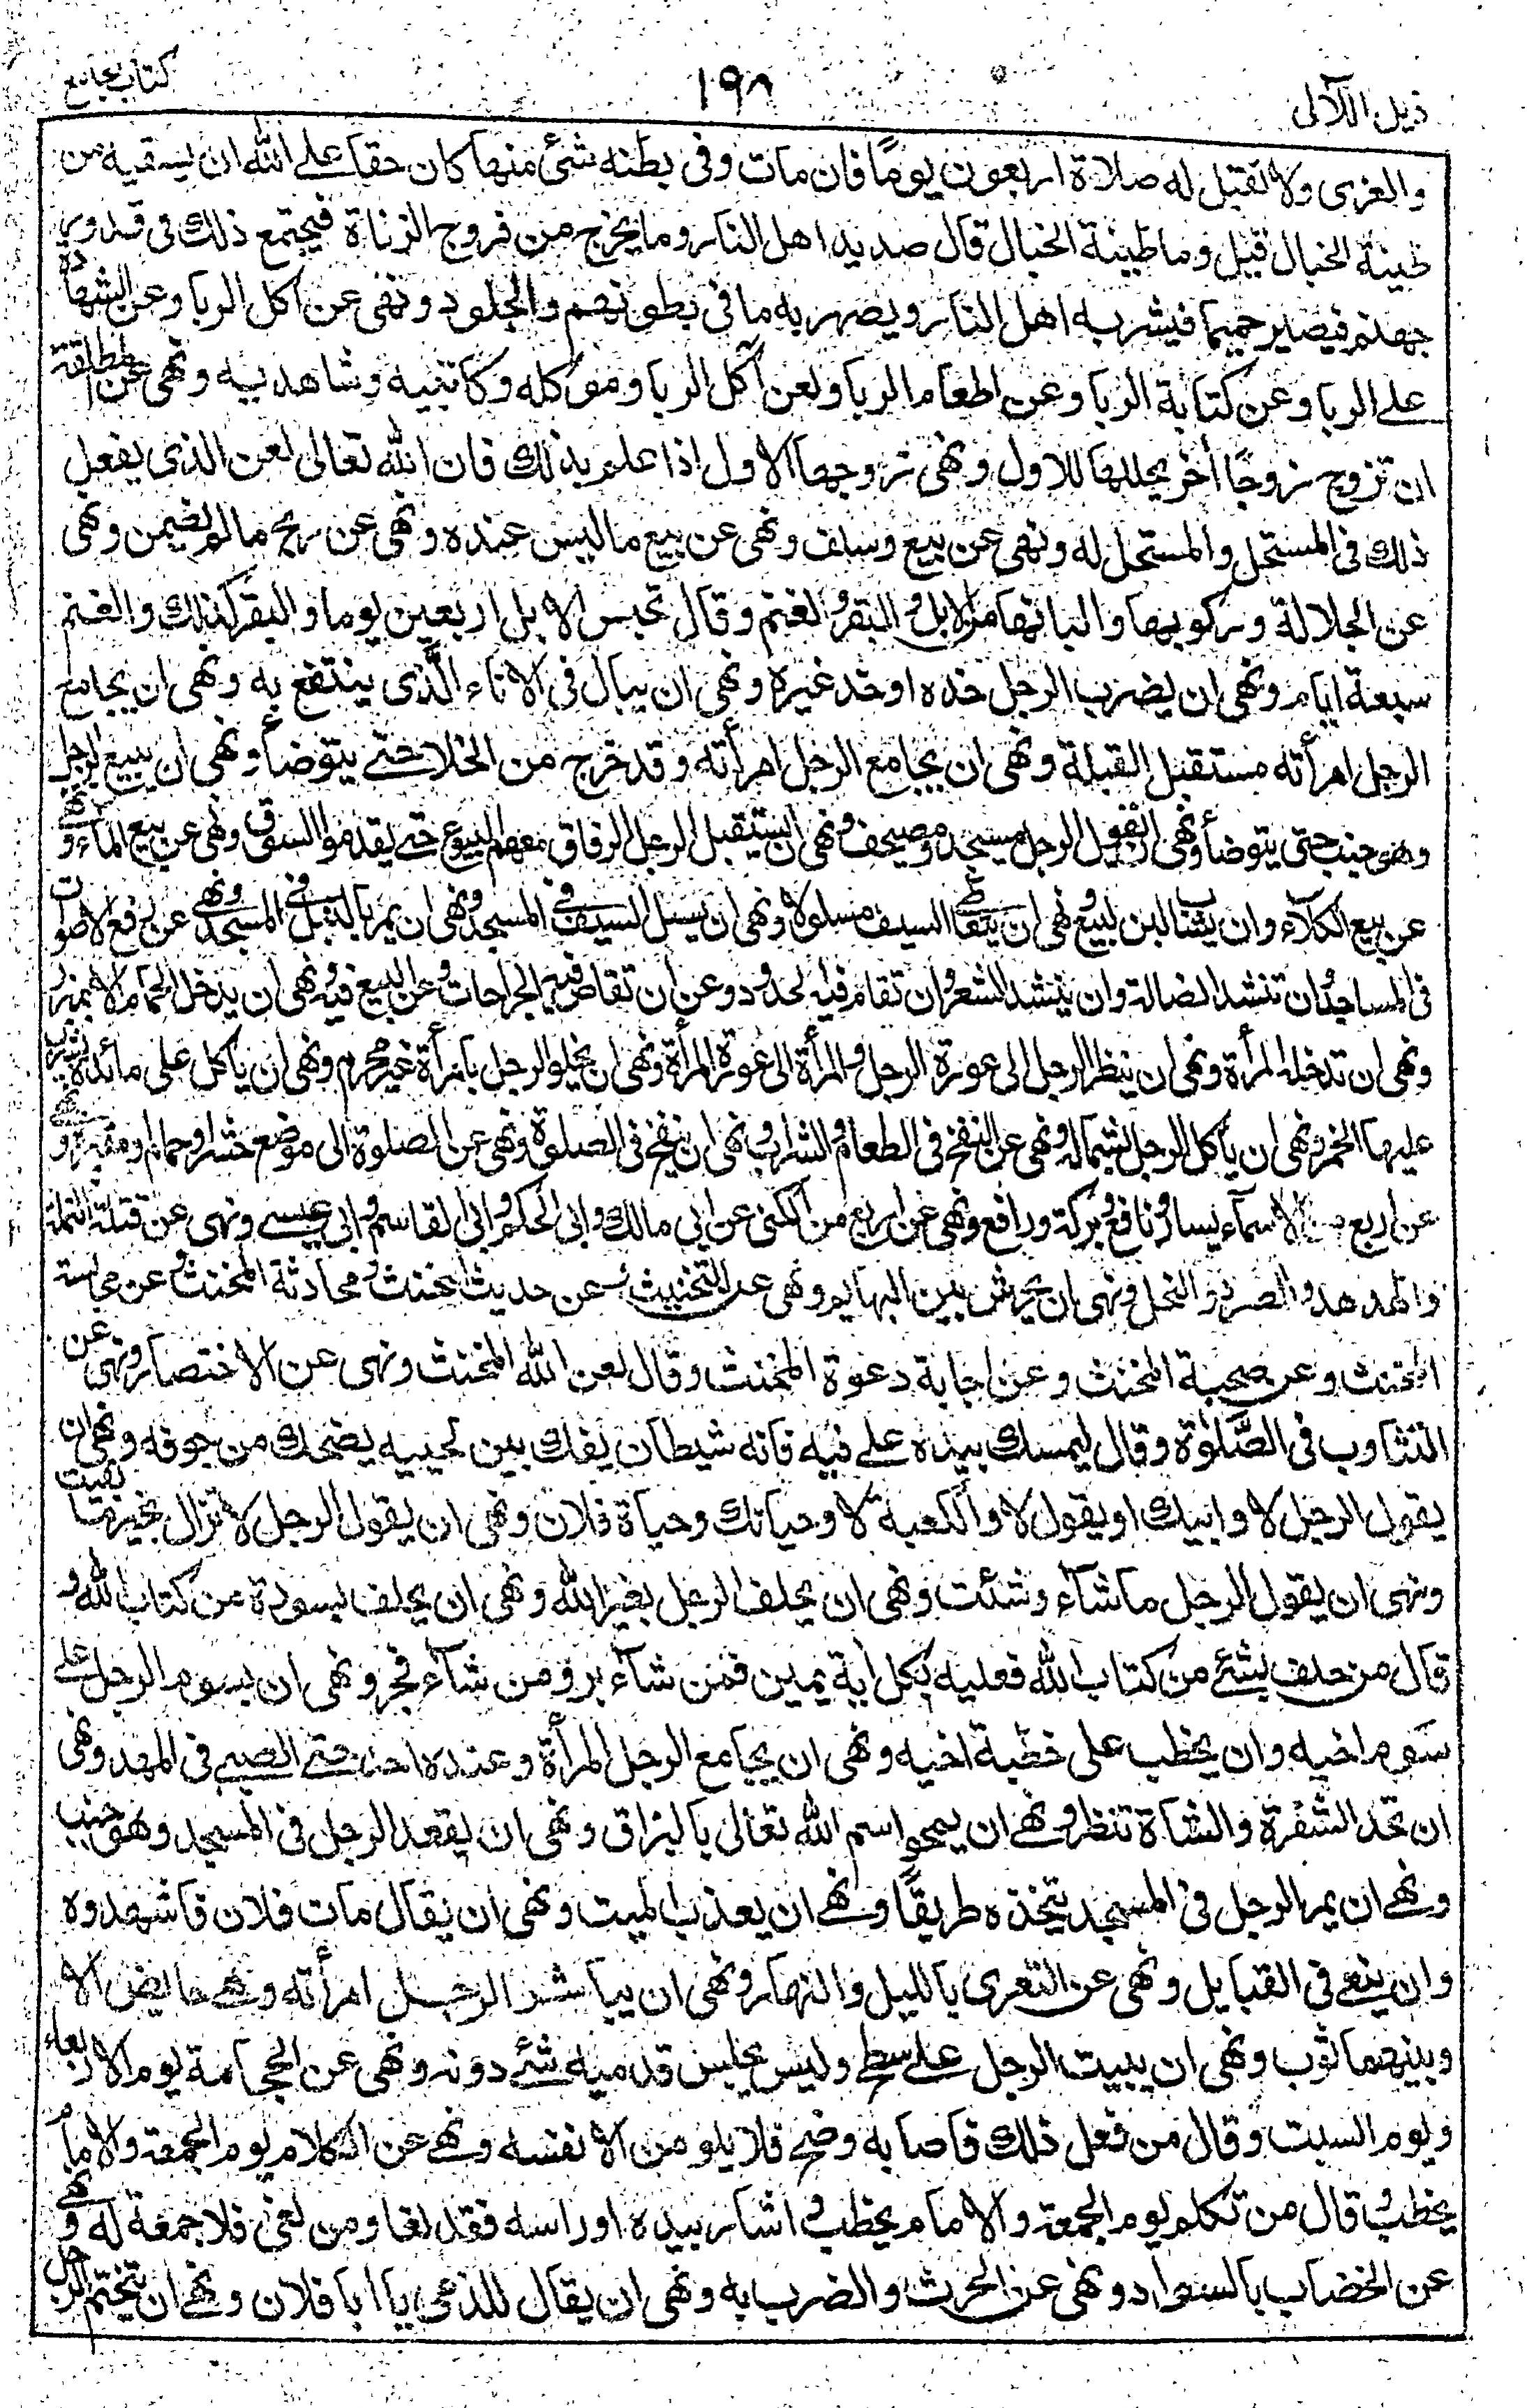 ذيل اللآلى
١٩٨
كتاب الجامع
والعزى ولا تقبل له صلاة اربعون يومًا فان مات وفى بطنه شئ منها كان حقا على الله ان يسقيه من
طينة الخبال قيل وما طينة الخبال قال صديد اهل النار وما يخرج من فروج الزناة فيجتمع ذلك فى قدور
جهنم فيصير حميما فيشربه اهل النار ويصهر به ما فى بطونهم والجلود ونهى عن اكل الربا وعن الشهادة
على الربا وعن كتابة الربا وعن اطعام الربا ولعن آكل الربا وموكله وكاتبيه وشاهديه ونهى عن المطلقة
ان تزوج زوجًا آخر يحللها للاول ونهى زوجها الاول اذا علم بذلك فان الله تعالى لعن الذى يفعل
ذلك فى المستحل والمستحل له ونهى عن بيع وسلف ونهى عن بيع ما ليس عنده ونهى عن ربح ما لم يضمن ونهى
عن الجلالة وركوبها والبانها من الابل والبقر والغنم وقال تحبس الابل اربعين يوما والبقر كذلك والغنم
سبعة ايام ونهى ان يضرب الرجل خده او خد غيره ونهى ان يبال فى الاناء الذى ينتفع به ونهى ان يجامع
الرجل امرأته مستقبل القبلة ونهى ان يجامع الرجل امرأته وقد خرج من الخلا حتى يتوضأ ونهى ان يبيع الرجل
وهو جنب حتى يتوضأ ونهى ان يقول الرجل مسيجد ومصيحف ونهى ان يستقبل الرجل الرفاق معهم البيوع حتى يقدموا السوق ونهى عن بيع الماء ونهى
عن بيع الكلاء وان يشاب البن لبيع ونهى ان يتعاطى السيف مسلولا ونهى ان يسل السيف فى المسجد ونهى ان يمر بالنبل فى المسجد ونهى عن رفع الاصوات
فى المساجد وان تنشد الضالة وان ينشد الشعر وان تقام فيه الحدود وعن ان تقاص فيه الجراحات وعن البيع فيه ونهى ان يدخل الحمام الا بمئزر
ونهى ان تدخله المرأة ونهى ان ينظر الرجل الى عورة الرجل والمرأة الى عورة المرأة ونهى ان يخلو الرجل بامرأة غير محرم ونهى ان ياكل على مائدة يشرب
عليها الخمر ونهى ان ياكل الرجل بشماله ونهى عن النفخ فى الطعام والشراب ونهى ان ينفخ فى الصلوة ونهى عن الصلوة الى موضع حش او حمام او مقبرة ونهى
عن اربع من الاسماء يسار ونافع وبركة ورافع ونهى عن اربع من الكنى عن ابى مالك وابى الحكم وابى القاسم وابى عيسى ونهى عن قتل النملة
والهدهد والصرد والنحل ونهى ان يحرش بين البهايم ونهى عن التخنيث وعن حديث المخنث ومحادثة المخنث وعن مجالسة
المخنث وعن صحبة المخنث وعن اجابة دعوة المخنث وقال لعن الله المخنث ونهى عن الاختصار ونهى عن
التثاوب فى الصَّلوٰة وقال ليمسك بيده على فيه فانه شيطان يفك بين لحييه يضحك من جوفه ونهى ان
يقول الرجل لا وابيك او يقول لا والكعبة لا وحياتك وحياة فلان ونهى ان يقول الرجل لا تزال بخير ما بقيت
ونهى ان يقول الرجل ما شاء وشئت ونهى ان يحلف الرجل بغير الله ونهى ان يحلف بسورة من كتاب الله و
قال من حلف بشئ من كتاب الله فعليه بكل اية يمين فمن شاء بر ومن شاء فجر ونهى ان يسوم الرجل على
سوم اخيه وان يخطب على خطبة اخيه ونهى ان يجامع الرجل المرأة وعنده احد حتى الصبى فى المهد ونهى
ان تحد الشفرة والشاة تنظر ونهى ان يمحو اسم الله تعالى بالبزاق ونهى ان يقعد الرجل فى المسجد وهو جنب
ونهى ان يمر الرجل فى المسجد يتخذه طريقًا ونهى ان يعذب الميت ونهى ان يقال مات فلان فاشهدوه
وان ينعى فى القبايل ونهى عن التعرى بالليل والنهار ونهى ان يباشر الرجل امرأته وهى حايض الا
وبينهما ثوب ونهى ان يبيت الرجل على سطح وليس يحبس قدميه شئ دونه ونهى عن الحجامة يوم الاربعاء
ويوم السبت وقال من فعل ذلك فاصابه وضح فلا يلومن الا نفسه ونهى عن الكلام يوم الجمعة والامام
يخطب وقال من تكلم يوم الجمعة والامام يخطب او اشار بيده او راسه فقد لغا ومن لغى فلا جمعة له ونهى
عن الخضاب بالسواد ونهى عن الحرث والضرب به ونهى ان يقال للذمى يا ابا فلان ونهى ان يتختم الرجل